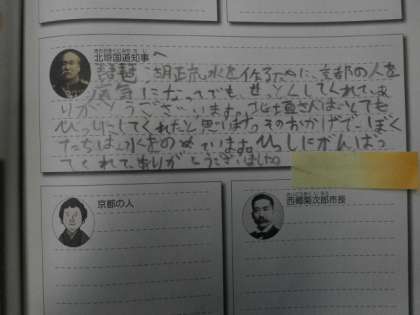 北垣国道知事へ
琵琶湖疏水を作るために、京都の人を
病気になってでも、せっとくしてくれてあ
りがとうございます。北垣さんは、とても
ひっしにしてくれたと思います。そのおかげで、ぼく
たちは、水をのめています。ひっしにがんばっ
てくれて、ありがとうございました。
京都の人
西郷菊次郎市長